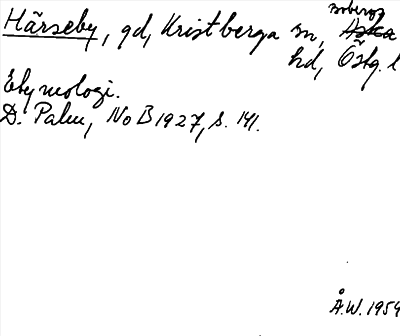 Härseby, gd, Kristberga sn, Aska
hd, Östg. l
Etymologi.
D. Palm, NoB 1927, s. 141.
Å.W. 1959